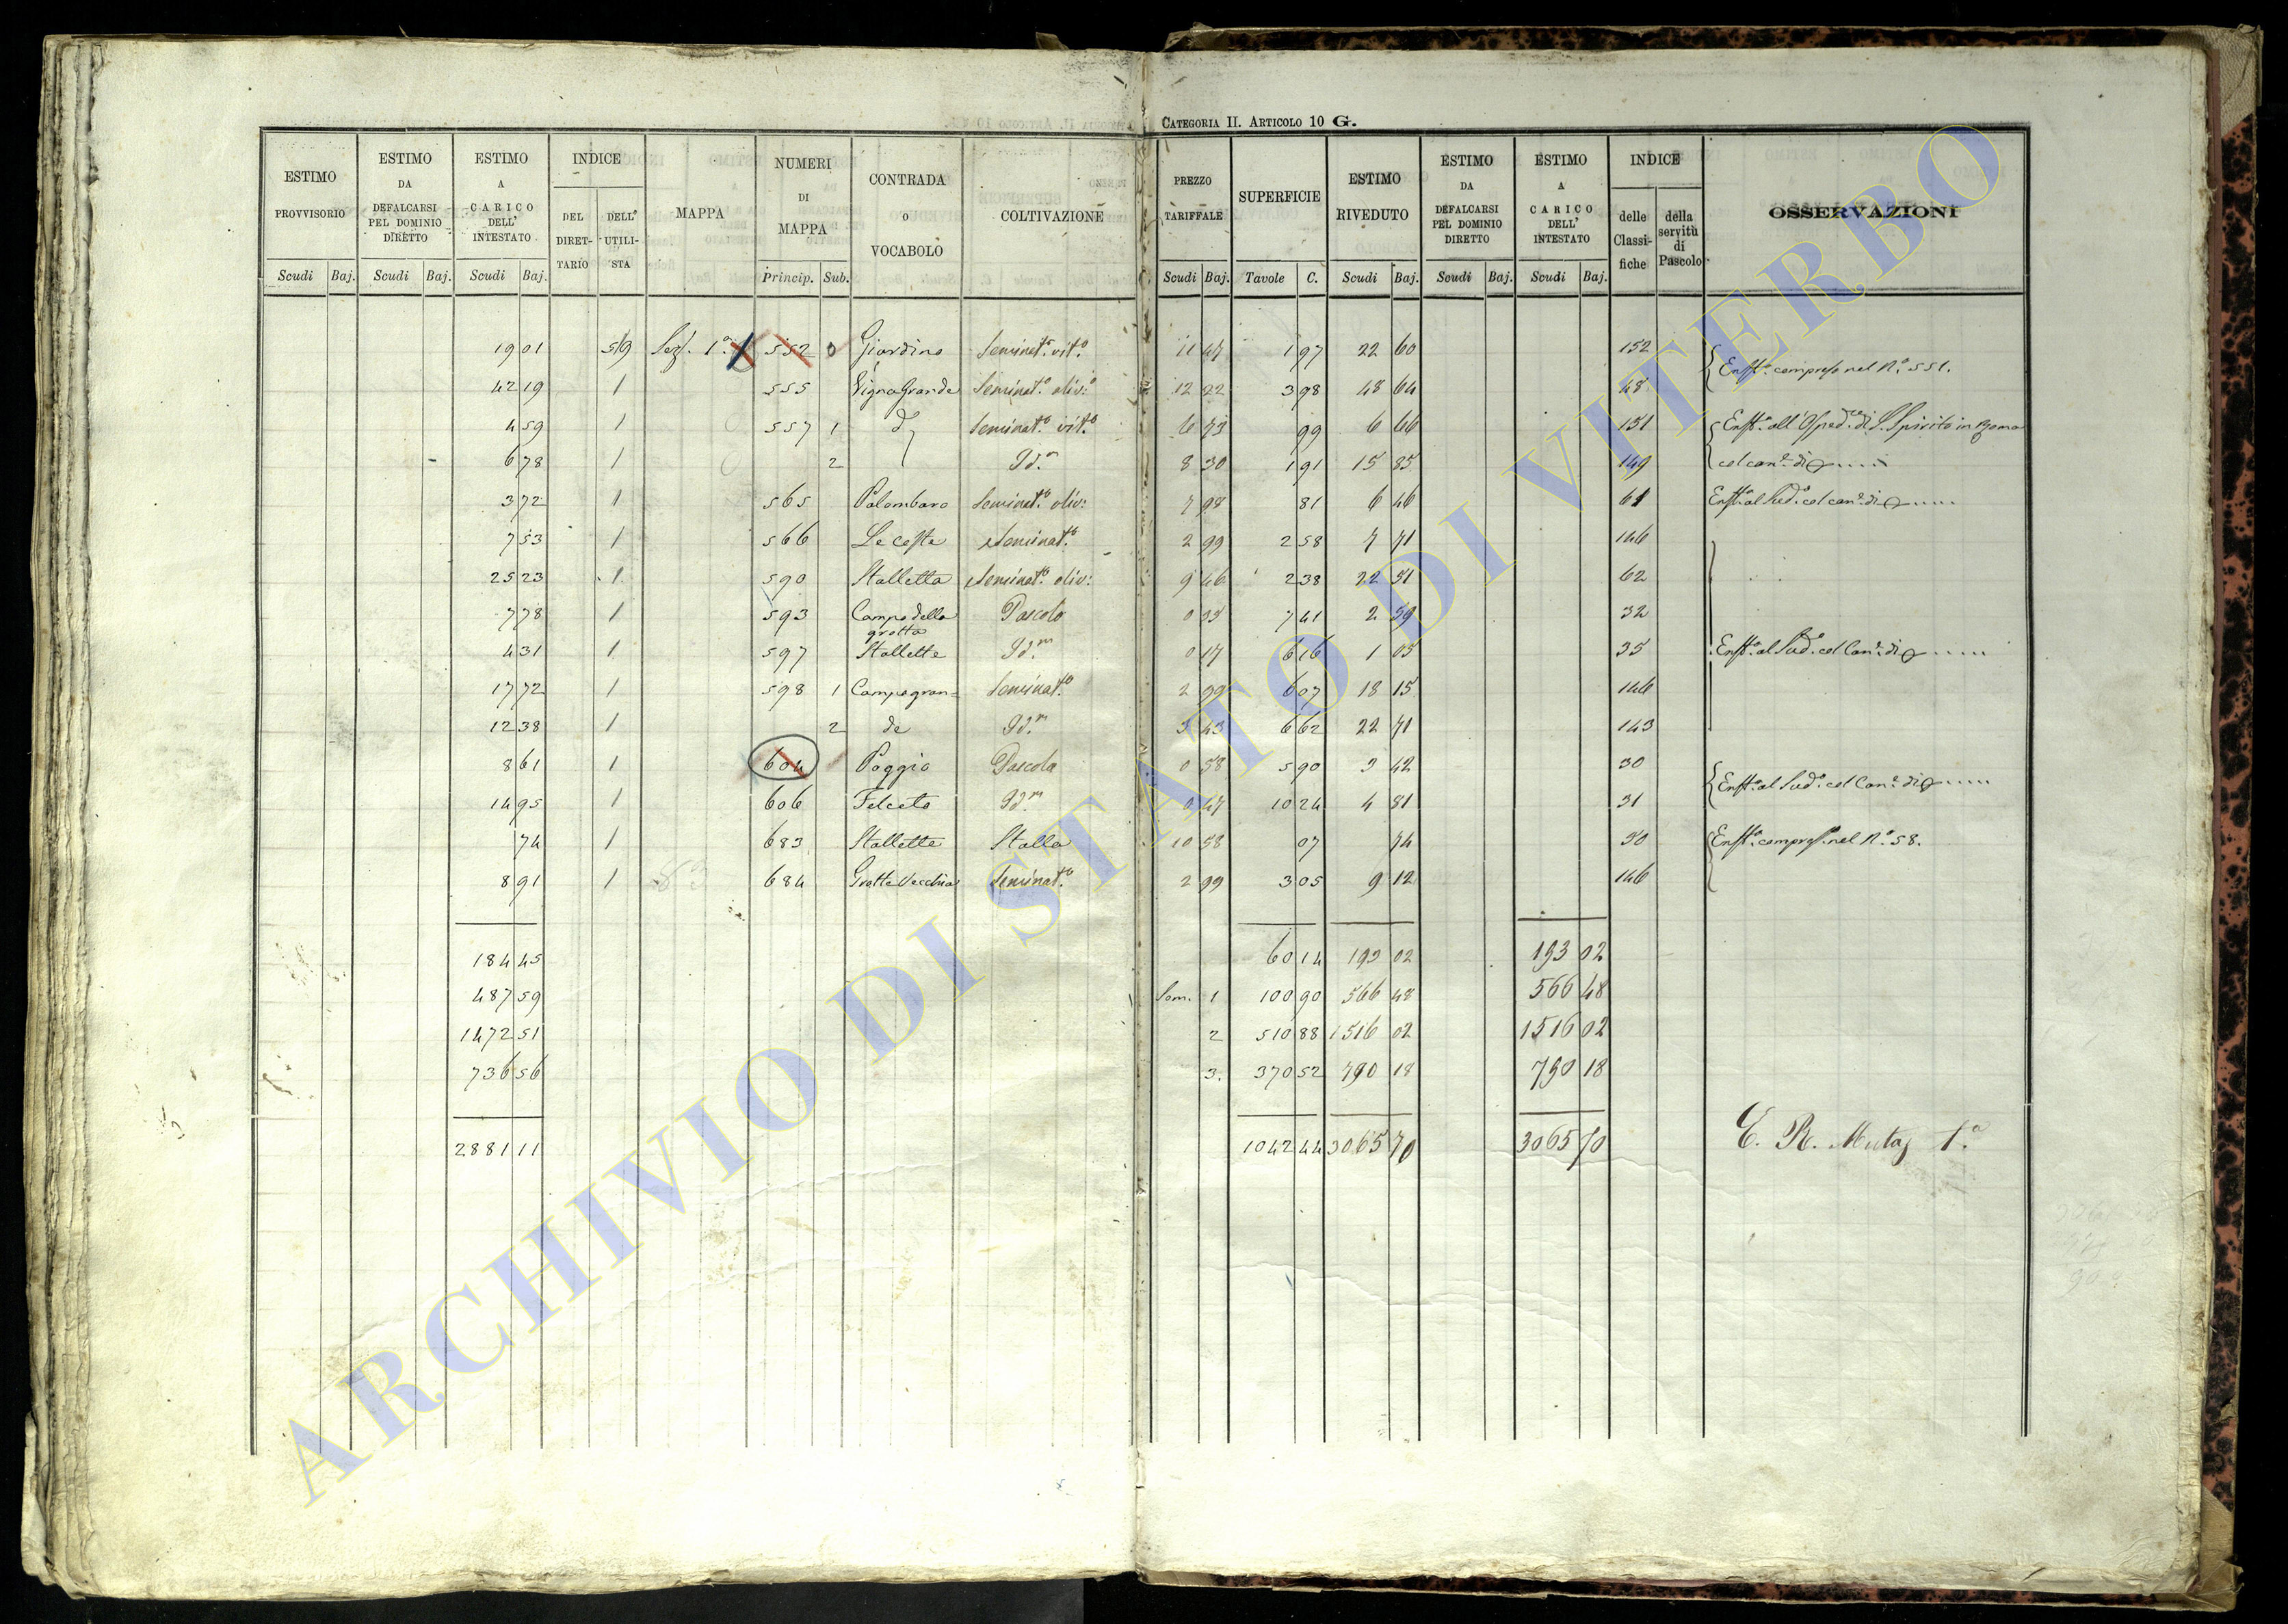 CATEGORIA II. ARTICOLO 10 G.
ESTIMO PROVVISORIO | ESTIMO DA DEFALCARSI PEL DOMINIO DIRETTO | ESTIMO A CARICO DELL' INTESTATO | INDICE DEL DIRETTARIO | DELL' UTILISTA | MAPPA | NUMERI DI MAPPA | CONTRADA O VOCABOLO | COLTIVAZIONE | PREZZO TARIFFALE | SUPERFICIE | ESTIMO RIVEDUTO | ESTIMO DA DEFALCARSI PEL DOMINIO DIRETTO | ESTIMO A CARICO DELL' INTESTATO | INDICE delle Classifiche | della servitù di Pascolo | OSSERVAZIONI
Scudi Baj. | Scudi Baj. | Scudi Baj. | Princip. Sub. | Scudi Baj. | Tavole C. | Scudi Baj. | Scudi Baj. | Scudi Baj.
19 01 | 59 | Sez. 1.a | 552 | 0 | Giardino | Seminat.o vit.o | 11 47 | 1 97 | 22 60 | 152
Enft.a compreso nel N.o 551.
42 19 | 1 | 555 | Vigna Grande | Seminat.o oliv.o | 12 22 | 3 98 | 48 64 | 48
4 59 | 1 | 557 | 1 | d.o | Seminat.o vit.o | 6 73 | 99 | 6 66 | 151 | Enft.a all'Osped. di S. Spirito in Roma
6 78 | 1 | 2 | Id.m | 8 30 | 1 91 | 15 85 | 149 | col can.e di
3 72 | 1 | 565 | Palombaro | Seminat.o oliv: | 7 98 | 81 | 6 46 | 61 | Enft.a al Sud.o col can.e di
7 53 | 1 | 566 | Le Coste | Seminat.o | 2 99 | 2 58 | 7 71 | 146
25 23 | 1 | 590 | Stalletta | Seminat.o oliv: | 9 46 | 2 38 | 22 51 | 62
7 78 | 1 | 593 | Campo della grotta | Pascolo | 0 35 | 7 41 | 2 59 | 32
4 31 | 1 | 597 | Stallette | Id.m | 0 17 | 6 16 | 1 05 | 35 | Enft.a al Sud.o col Can.e di
17 72 | 1 | 598 | 1 | Campogran= | Seminat.o | 2 99 | 6 07 | 18 15 | 146
12 38 | 1 | 2 | de | Id.m | 3 43 | 6 62 | 22 71 | 143
8 61 | 1 | 604 | Poggio | Pascolo | 0 58 | 5 90 | 3 42 | 30
Enft.a al Sud.o col Can.e di
14 95 | 1 | 606 | Felceto | Id.m | 0 47 | 10 24 | 4 81 | 31
74 | 1 | 683 | Stallette | Stalla | 10 58 | 07 | 74 | 50 | Enft.a compres. nel N.o 58.
8 91 | 1 | 684 | Grotte Vecchia | Seminat.o | 2 99 | 3 05 | 9 12 | 146
184 45 | 60 14 | 193 02 | 193 02
487 59 | Som. 1 | 100 90 | 566 48 | 566 48
1472 51 | 2 | 510 88 | 1516 02 | 1516 02
736 56 | 3. | 370 52 | 790 18 | 790 18
2881 11 | 1042 44 | 3065 70 | 3065 70 | E. R. Mutaz 1.a
ARCHIVIO DI STATO DI VITERBO